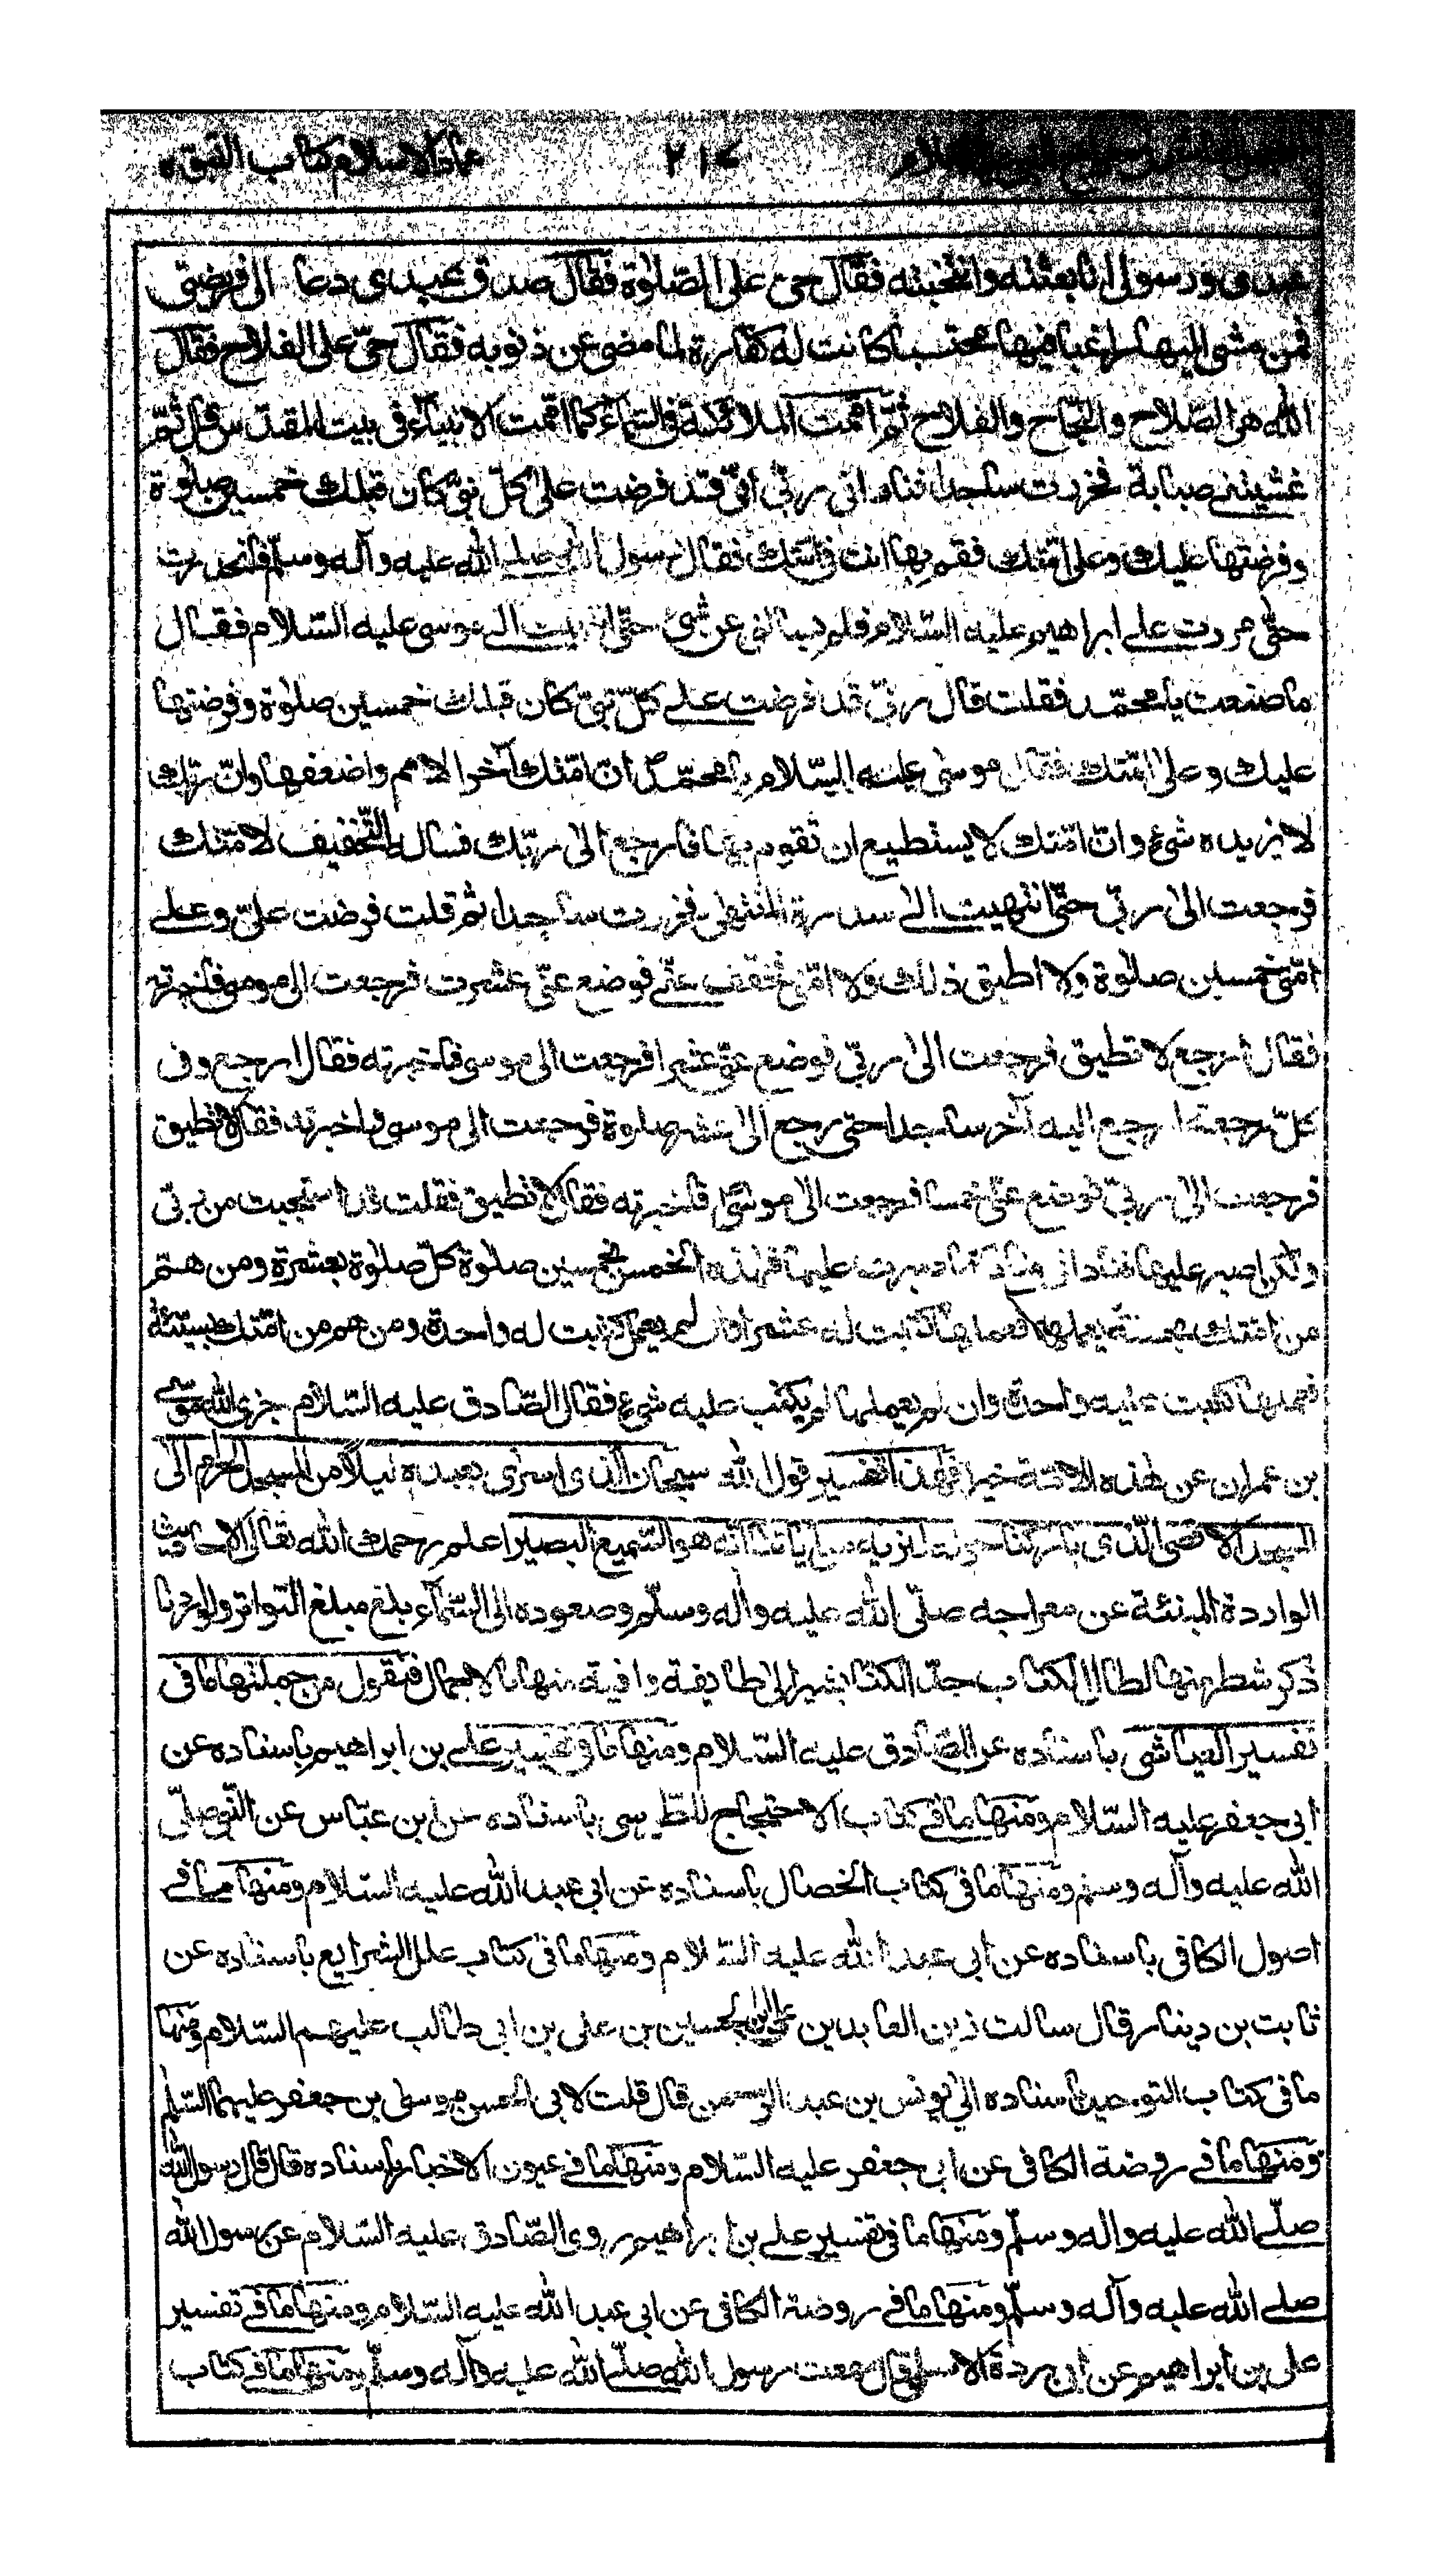 عماد الاسلام كتاب النبوة ٢١٧
عبدى ورسولى انا بعثته وانتجبته فقال حىّ على الصّلوة فقال صدق عبدى دعا الى فريضتى
فمن مشى اليها راغبا فيها محتسبا كانت له كفارة لما مضى عن ذنوبه فقال حىّ على الفلاح فقال
الله هى الصّلاح والنّجاح والفلاح ثمّ اممت الملائكة فى السّماء كما اممت الانبياء فى بيت المقدس قال ثمّ
غشيتنى صبابة فخررت ساجدا فنادانى ربّى انّى قد فرضت على كلّ نبىّ كان قبلك خمسين صلوة
وفرضتها عليك وعلى امّتك فقم بها انت فى امّتك فقال رسول الله صلى الله عليه وآله وسلّم فانحدرت
حتّى مررت على ابراهيم عليه السّلام فلم يسالنى عن شئ حتّى انتهيت الى موسى عليه السّلام فقال
ما صنعت يا محمّد فقلت قال ربّى قد فرضت على كلّ نبىّ كان قبلك خمسين صلوة وفرضتها
عليك وعلى امّتك فقال موسى عليه السّلام يا محمّد انّ امّتك آخر الامم واضعفها وانّ ربّك
لا يزيده شئ وانّ امّتك لا يستطيع ان تقوم بها فارجع الى ربّك فساله التّخفيف لامّتك
فرجعت الى ربّى حتّى انتهيت الى سدرة المنتهى فخررت ساجدا ثم قلت فرضت علىّ وعلى
امّتى خمسين صلوة ولا اطيق ذلك ولا امّتى فخفف عنّى فوضع عنّى عشرت فرجعت الى موسى فاخبرته
فقال ارجع لا تطيق فرجعت الى ربّى فوضع عنّى عشرا فرجعت الى موسى فاخبرته فقال ارجع وفى
كلّ رجعة ارجع اليه آخر ساجدا حتى رجع الى عشر صلوة فرجعت الى موسى فاخبرته فقال لا تطيق
فرجعت الى ربّى فوضع عنّى خمسا فرجعت الى موسى فاخبرته فقال لا تطيق فقلت قد استحييت من ربّى
ولكن اصبر عليها فنادانى مناد كما صبرت عليها فهذه الخمس بخمسين صلوة كلّ صلوة بعشرة ومن همّ
من امّتك بحسنة يعملها فعملها كتبت له عشرا وان لم يعمل كتبت له واحدة ومن هم من امّتك بسيّئة
فعملها كتبت عليه واحدة وان لم يعملها لم يكتب عليه شئ فقال الصّادق عليه السّلام جزى الله موسى
بن عمران عن هذه الامّة خيرا فهذا تفسير قول الله سبحان الّذى اسرى بعبده ليلا من المسجد الحرام الى
المسجد الاقصى الّذى باركنا حوله لنريه من اياتنا انّه هو السّميع البصير اعلم رحمك الله تعالى الاحاديث
الواردة المبنئة عن معراجه صلّى الله عليه وآله وسلّم وصعوده الى السّماء بلغ مبلغ التواتر ولو اردنا
ذكر شطر منها لطال الكتاب جدّا لكنّا نشير الى طايفة وافية منها بالاجمال فنقول من جملتها ما فى
تفسير العياشى باسناده عن الصّادق عليه السّلام ومنها ما فى تفسير على بن ابراهيم باسناده عن
ابى جعفر عليه السّلام ومنها ما فى كتاب الاحتجاج للطّبرسى باسناده عن ابن عبّاس عن النّبى صلّى
الله عليه وآله وسلم ومنها ما فى كتاب الخصال باسناده عن ابى عبد الله عليه السّلام ومنها ما فى
اصول الكافى باسناده عن ابى عبد الله عليه السّلام ومنها ما فى كتاب علل الشرايع باسناده عن
ثابت بن دينار قال سالت زين العابدين على بن الحسين بن على بن ابى طالب عليهم السّلام ومنها
ما فى كتاب التوحيد باسناده الى يونس بن عبد الرّحمن قال قلت لابى الحسن موسى بن جعفر عليهما السّلم
ومنها ما فى روضة الكافى عن ابى جعفر عليه السّلام ومنها ما فى عيون الاخبار باسناده قال قال رسول الله
صلّى الله عليه وآله وسلّم ومنها ما فى تفسير على بن ابراهيم روى الصّادق عليه السّلام عن رسول الله
صلى الله عليه وآله وسلّم ومنها ما فى روضة الكافى عن ابى عبد الله عليه السّلام ومنها ما فى تفسير
على بن ابراهيم عن ابى بردة الاسلمى قال سمعت رسول الله صلّى الله عليه وآله وسلّم ومنها ما فى كتاب